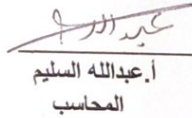 عبدالله
أ.عبدالله السليم
المحاسب